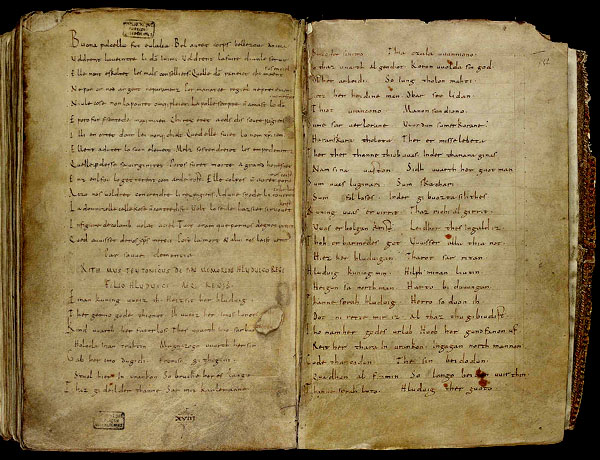 Buona pulcella fut eulalia. Bel auret corps bellezour anima
Voldrent la ueintre li deo Inimi. Voldrent la faire diaule seruir
Elle non eskoltet les mals conselliers. Quelle deo raneiet chi maent
Ne por or ned argent ne paramenz. Por manatce regiel ne preiement
Niule cose non la pouret omque pleier. La polle sempre non amast lo deo
E poro fut presentede maximiien. Chi rex eret a cels dis soure pagiens
Il li enortet dont lei nonq chielt. Qued elle fuiet lo nom xpiien
Ellent adunet lo suon element. Melz sostendreiet les empedementz
Quelle perdesse sa uirginitet. Poros furet morte a grand honestet
Enz enl fou la getterent com arde tost. Elle colpes non auret por
A czo nos uoldret concreidre li rex pagiens. Ad une spede li
La domnizelle celle kose non contredist. Volt lo seule lazsier si ruouet
In figure de colomb uolat a ciel. Tuit oram que por nos degnet preier
Qued auuisset de nos xps mercit. Post la mort & a lui nos laist uenir
Par souue clementia
RITHMUS TEUTONICUS DE PIAE MEMORIAE HLUDUICO REGE
FILIO HLUDUICI AEQ; REGIS
Einan kuning uueiz ih. Heizsit her hluduig
Ther gerno gode thionot. Ih uueiz her imos lonot
Kind uuarth her faterlos. Thes uuarth imo sar buoz
Holoda inan truhtin. Magaczogo uuarth her sin
Gab her imo dugidi. Fronisc githigini
Stual hier in urankon. So bruche her es lango
Thaz gideilder thanne Sar mit karlemanne
XVIII
Bruoder sinemo Thia czala uuunniono
So thaz uuarth al gendiot Koron uuolda sin god
Ob her arbeidi So iung tholon mahti
Lietz her heidine man Obar seo lidan
Thiot urancono Manon sundiono
Sume sar uerlorane Uuurdun sumerkorane
Haranskara tholota Ther er misselebeta
Ther ther thanne thiob uuas Inder thanana ginas
Nam sina uaston Sidh uuarth her guot man
Sum uuas luginari Sum skachari
Sum fol loses Inder gibuozta sih thes
Kuning uuas eruirrit Thaz richi al girrit
Uuas erbolgan krist Leidhor thes ingald iz
Thoh erbarmedes got Uuisser alla thia not
Hiez her hluduigan Tharot sar ritan
Hluduig kuning min Hilph minan liutin
Heigun sa northman Harto biduuungan
Thanne sprah hluduig Herro so duon ih
Dot ni rette mir iz Al thaz thu gibiudist
Tho nam her godes urlub Huob her gundfanon uf
Reit her thara in urankon Ingagan northmannon
Gode thancodun The sin beidodun
Quadhun al fro min So lango beidon uuir thin
Thanne sprah luto Hluduig ther guoto